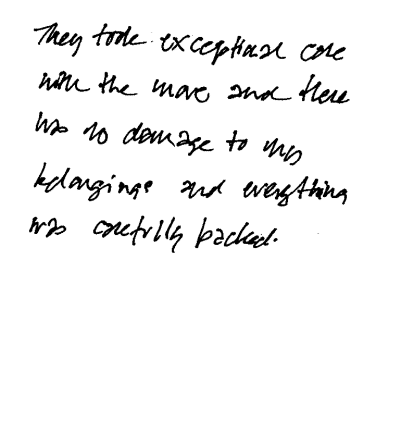 They took exceptional care
with the move and there
was no damage to my
belongings and everything
was carefully packed.